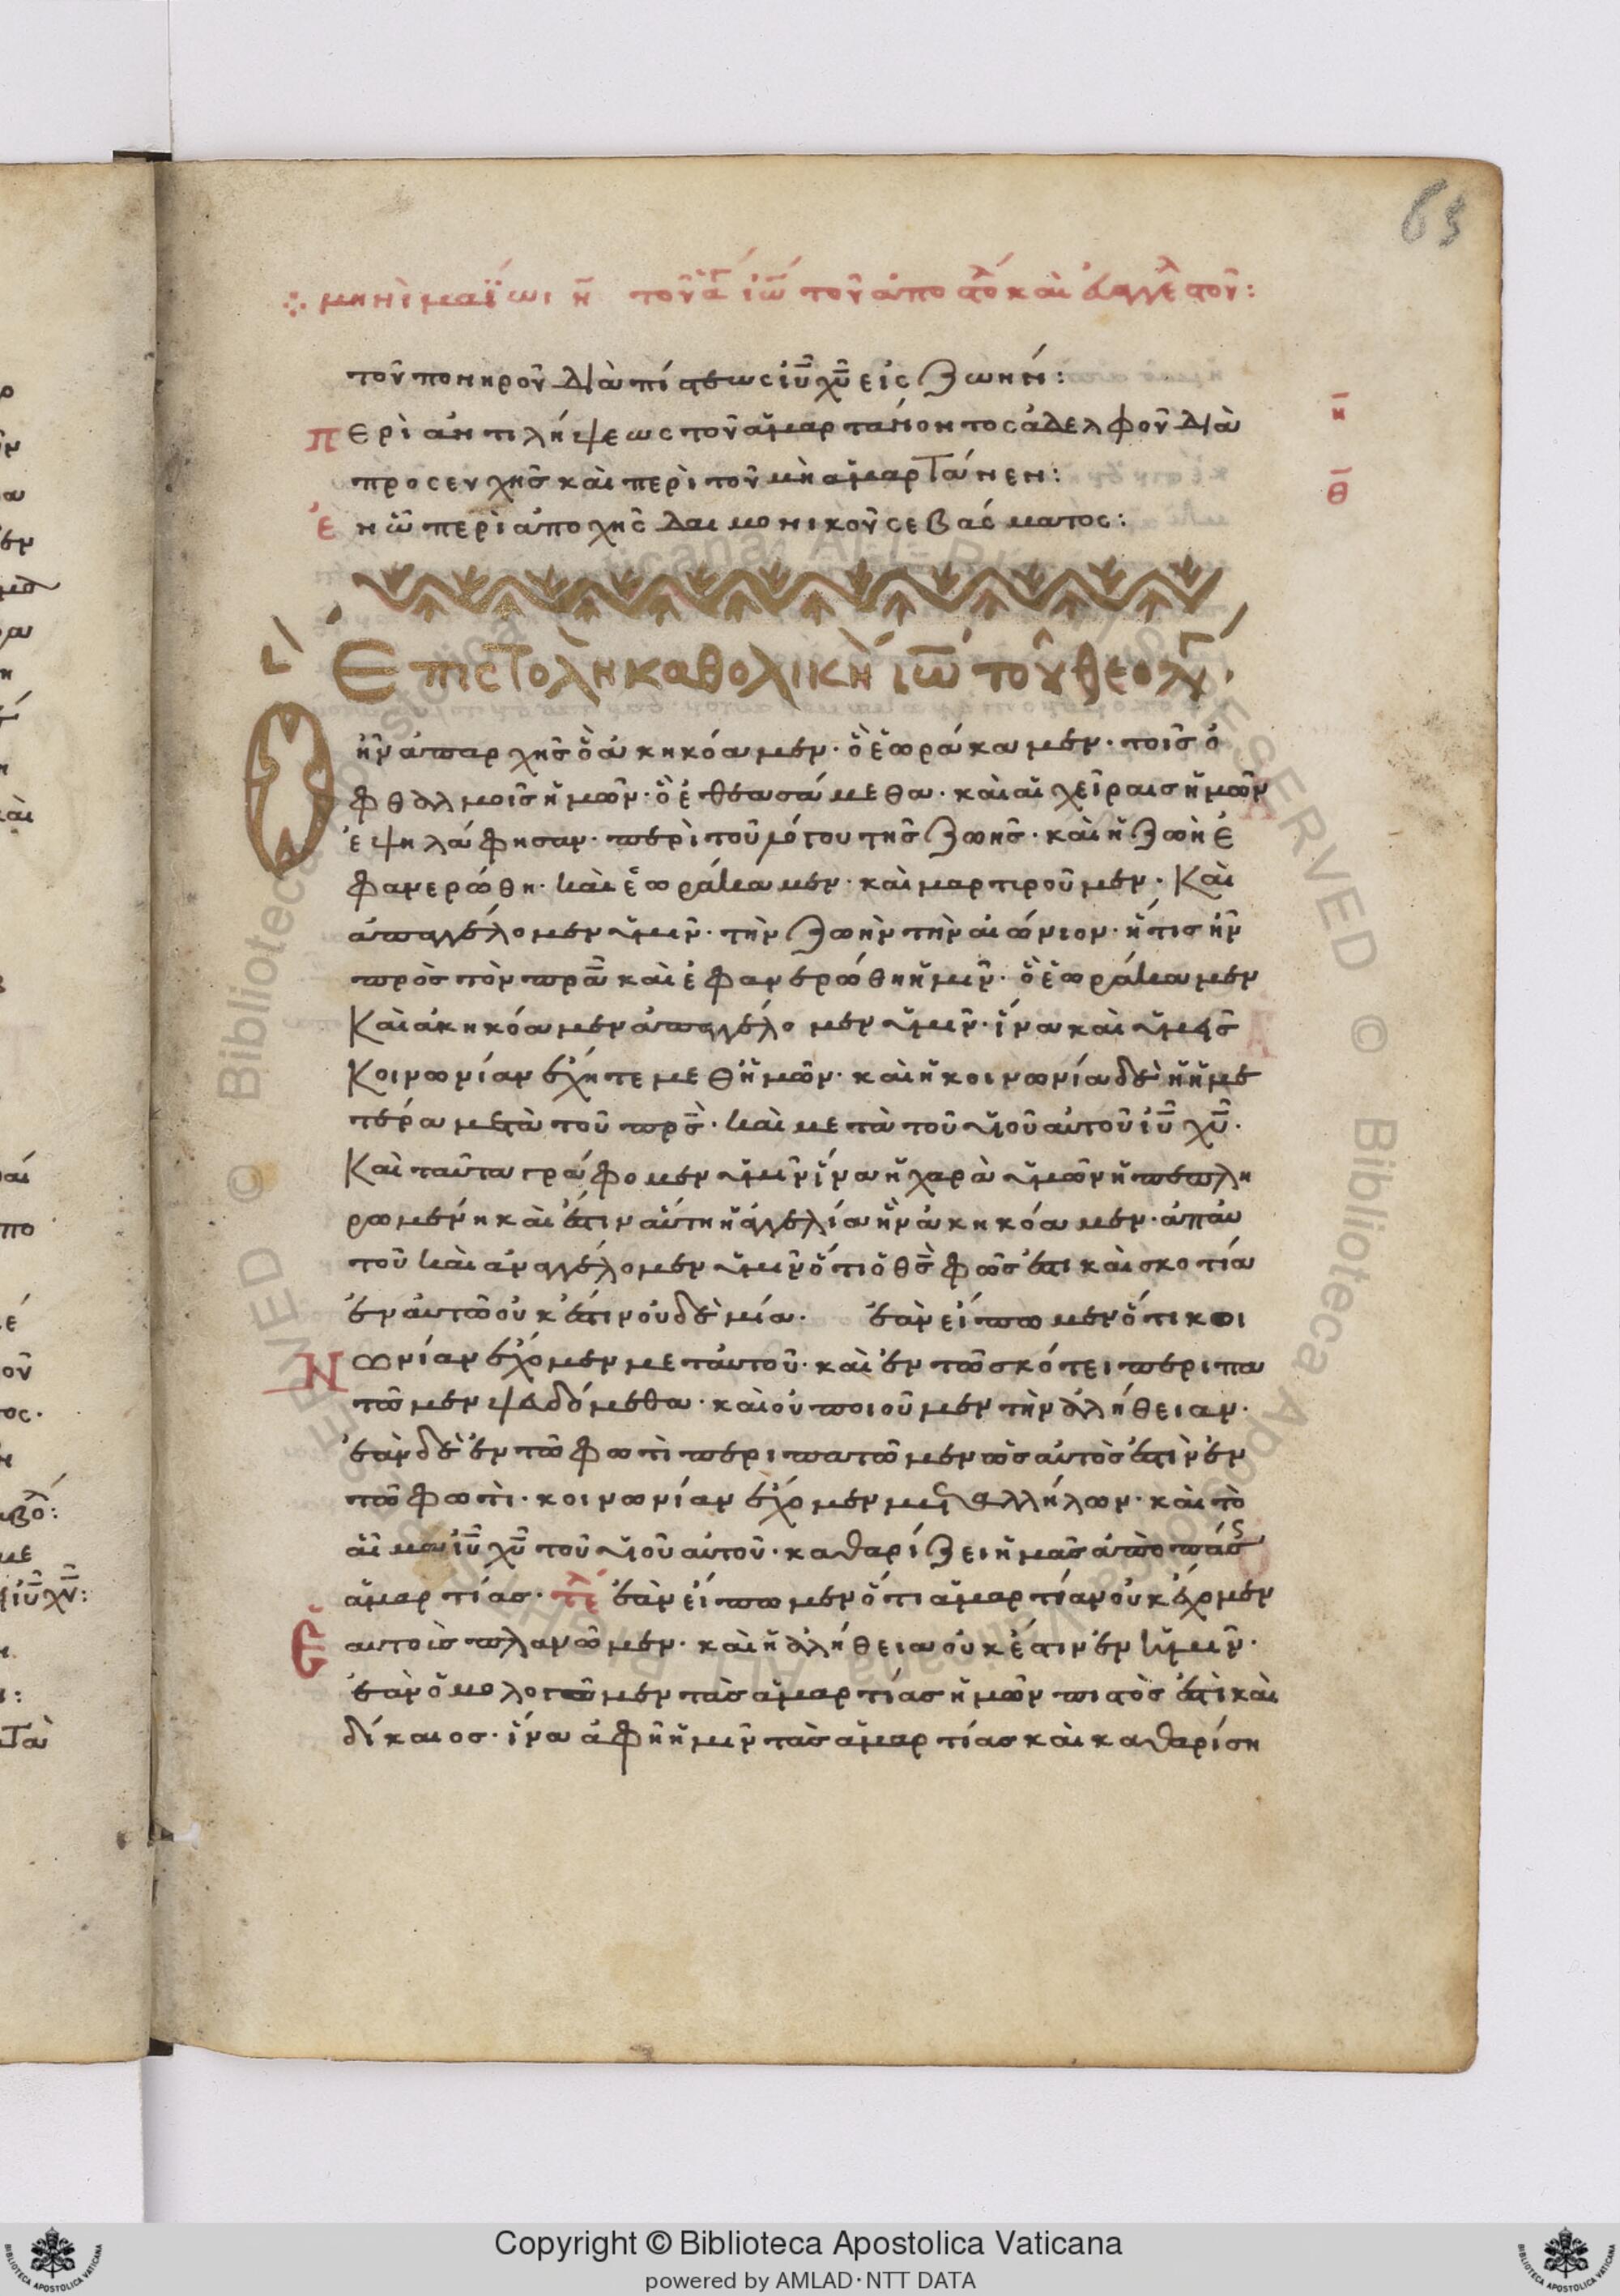 63
μηνὶ μαΐωι η̄ τοῦ ἁγ ἰω̄ τοῦ ἀποστο καὶ εὐαγγε στοῦ:
τοῦ πονηροῦ διὰ πίστεως ἰῦ χῦ εἰς ζωήν:
Περὶ ἀντιλήψεως τοῦ ἁμαρτάνοντος ἀδελφοῦ διὰ
η̄
προσευχῆς καὶ περὶ τοῦ μὴ ἁμαρτάνειν:
θ̄
Ἐν ὧ περὶ ἀποχῆς δαιμονικοῦ σεβάσματος:
Ἐπιστολὴ καθολικὴ ἰω̄ τοῦ θεολγ.
Ὃ ἦν ἀπαρχῆς ὃ ἀκηκόαμεν· ὃ ἑωράκαμεν· τοῖς ὀ
φθαλμοῖς ἡμῶν· ὃ ἐθεασάμεθα· καὶ αἱ χεῖραις ἡμῶν
ἐψηλάφησαν· περὶ τοῦ λόγου τῆς ζωῆς· καὶ ἡ ζωὴ ἐ
φανερώθη· καὶ ἑωράκαμεν· καὶ μαρτιροῦμεν· Καὶ
ἀπαγγέλομεν ὑμῖν· τὴν ζωὴν τὴν αἰώνιον· ἥτις ἦν
πρὸς τὸν πρᾱ καὶ ἐφανερώθη ἡμῖν· ὃ ἑωράκαμεν
Καὶ ἀκηκόαμεν ἀπαγγέλομεν ὑμῖν· ἵνα καὶ ὑμεῖς
Κοινωνίαν ἔχητε μεθ ἡμῶν· καὶ ἡ κοινωνία δὲ ἡ ἡμε
τέρα μετὰ τοῦ πρς̄· καὶ μετὰ τοῦ υἱοῦ αὐτοῦ ἰῦ χῦ.
Καὶ ταῦτα γράφομεν ὑμῖν ἵνα ἡ χαρὰ ὑμῶν ἡ πεπλη
ρωμένη καὶ ἔστιν αὕτη ἡ ἀγγελία ἣν ἀκηκόαμεν· ἀπαυ
τοῦ καὶ αναγγέλομεν ὑμῖν ὅτι ὁ θς̄ φῶς ἐστι καὶ σκοτία
ἐν αὐτῶ οὐκ ἔστιν οὐδὲ μία. ἐὰν εἴπωμεν ὅτι κοι
Νωνίαν ἔχομεν μεταυτοῦ· καὶ ἐν τῶ σκότει περιπα
τῶμεν ψευδόμεθα· καὶ οὐ ποιοῦμεν τὴν ἀλήθειαν.
ἐὰν δὲ ἐν τῶ φωτὶ περιπατῶμεν ὡς αὐτὸς ἐστὶν ἐν
τῶ φωτὶ· κοινωνίαν ἔχομεν με ἀλλήλων· καὶ τὸ
αἷμα ἰῦ χῦ τοῦ υἱοῦ αὐτοῦ· καθαρίζει ἡμᾶς ἀπὸ πάς
ἁμαρτίας· τε ἐὰν εἴπωμεν ὅτι ἁμαρτίαν οὐκ ἔχομεν
Ἑαυτοὶς πλανῶμεν· καὶ ἡ ἀλήθεια οὐκ ἔστιν ἐν ἡμῖν.
ἐὰν ὁμολογῶμεν τὰς ἁμαρτίας ἡμῶν πιστὸς ἐστὶ καὶ
δίκαιος· ἵνα ἀφῆ ἡμῖν τὰς ἁμαρτίας καὶ καθαρίση
Copyright © Biblioteca Apostolica Vaticana
powered by AMLAD·NTT DATA